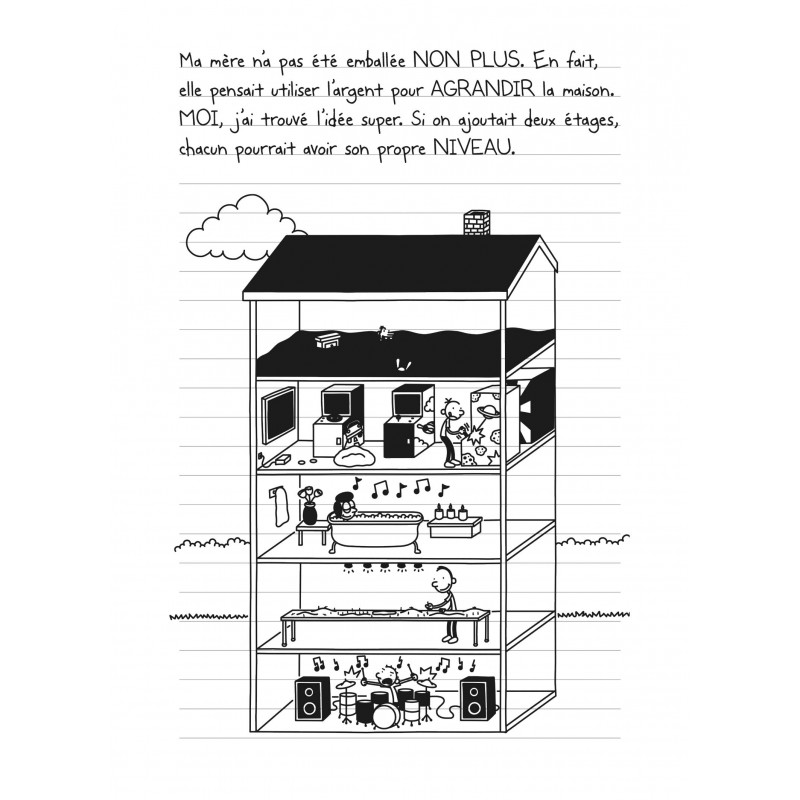 Ma mère n'a pas été emballée NON PLUS. En fait,
elle pensait utiliser l'argent pour AGRANDIR la maison.
MOI, j'ai trouvé l'idée super. Si on ajoutait deux étages,
chacun pourrait avoir son propre NIVEAU.